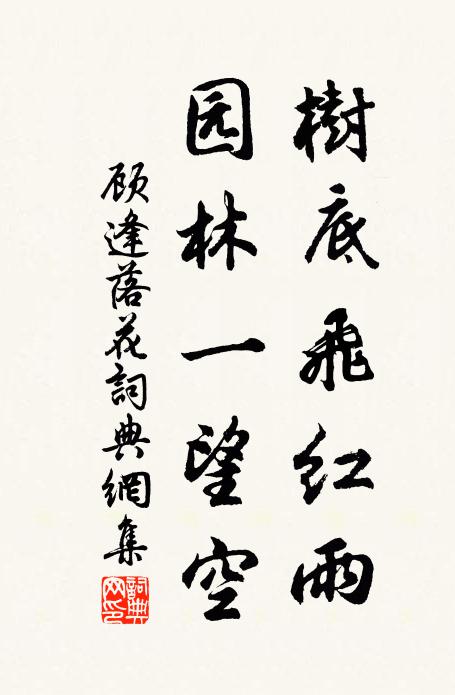 樹底飛紅雨
园林一望空
顾逢落花詞典網集
詞典网印